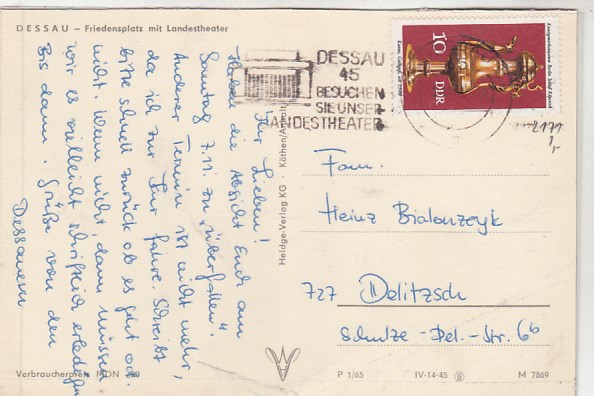 DESSAU – Friedensplatz mit Landestheater
Ihr Lieben!
Haben die Absicht Euch am
Sonntag 7.11. zu „überfallen".
Anderer Termin ist nicht mehr,
da ich zur Kur fahre. Schreibt
bitte schnell zurück ob es geht od.
nicht. Wenn nicht, dann müssen
wir es vielleicht schriftlich erledigen
Bis dann. Grüße von den
Dessauern
Verbraucherpreis MDN
Heldge-Verlag KG · Köthen/Anhalt
DESSAU
45
BESUCHEN
SIE UNSER
LANDESTHEATER
10
DDR
2179
Fam.
Heinz Bialonzeyk
727 Delitzsch
Schulze-Del.-Str. 66
P 1/65 IV-14-45 M 7869